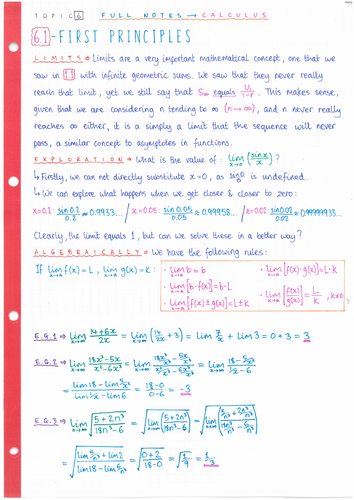 TOPIC 6 FULL NOTES → CALCULUS
6.1 - FIRST PRINCIPLES
LIMITS → Limits are a very important mathematical concept, one that we
saw in 1.1 with infinite geometric sums. We saw that they never really
reach that limit, yet we still say that S∞ equals U₁/1-r. This makes sense,
given that we are considering n tending to ∞ (n→∞), and n never really
reaches ∞ either, it is a simply a limit that the sequence will never
pass, a similar concept to asymptotes in functions.
EXPLORATION → What is the value of : lim x→0 (sinx/x) ?
↳ Firstly, we can not directly substitute x=0, as sin0/0 is undefined.
↳ We can explore what happens when we get closer & closer to zero:
x=0.2: sin0.2/0.2 = 0.9933... / x=0.05: sin0.05/0.05 = 0.99958... / x=0.02: sin0.02/0.02 = 0.99999933...
Clearly, the limit equals 1, but can we solve these in a better way?
ALGEBRAICALLY → We have the following rules:
If lim x→a f(x) = L, lim x→a g(x) = k :
· lim x→a b = b · lim x→a [f(x)·g(x)] = L·k
· lim x→a [b·f(x)] = b·L · lim x→a [f(x)/g(x)] = L/k, k≠0
· lim x→a [f(x)±g(x)] = L±k
E.G.1 ⇒ lim x→∞ 14+6x/2x = lim x→∞ (14/2x + 3) = lim 7/x + lim 3 = 0 + 3 = 3
E.G.2 ⇒ lim x→∞ 18x³-5x/x²-6x³ = lim x→∞ 18x³/x³ - 5x/x³ / x²/x³ - 6x³/x³ = lim x→∞ 18 - 5/x² / 1/x - 6
= lim 18 - lim 5/x² / lim 1/x - lim 6 = 18-0/0-6 = -3
E.G.3 ⇒ lim n→∞ √5+2n³/18n³-6 = √lim n→∞ (5+2n³/18n³-6) = √lim n→∞ (5/n³ + 2n³/n³ / 18n³/n³ - 6/n³)
= √lim 5/n³ + lim 2 / lim 18 - lim 6/n³ = √0+2/18-0 = √1/9 = 1/3